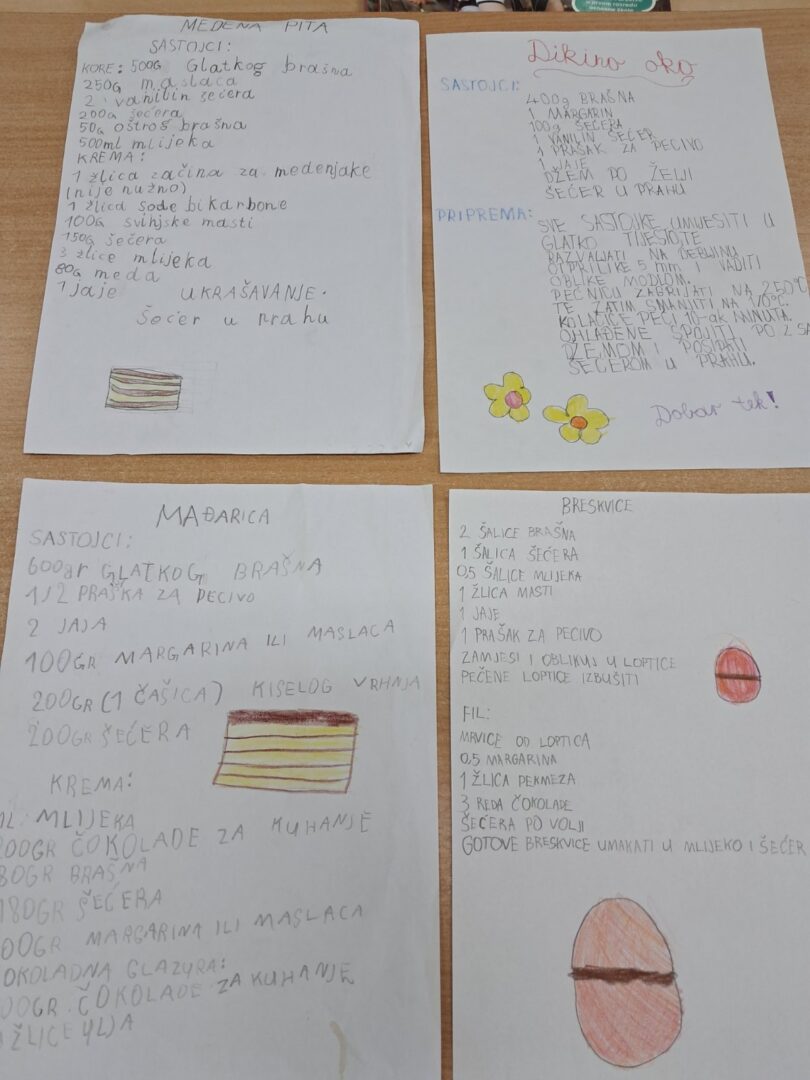 MEDENA PITA
SASTOJCI:
KORE: 500G Glatkog brašna
250G maslaca
2 vanilin šećera
200G šećera
50G oštrog brašna
500ml mlijeka
KREMA:
1 žlica začina za medenjake
(nije nužno)
1 žlica sode bikarbone
100G svinjske masti
150G šećera
3 žlice mlijeka
80G meda
1 jaje UKRAŠAVANJE.
Šećer u prahu
Dikino oko
SASTOJCI:
400g BRAŠNA
1 MARGARIN
100g ŠEĆERA
1 VANILIN ŠEĆER
1 PRAŠAK ZA PECIVO
1 JAJE
DŽEM PO ŽELJI
ŠEĆER U PRAHU
PRIPREMA:
SVE SASTOJKE UMIJESITI U
GLATKO TIJESTO TE
RAZVALJATI NA DEBLJINU
OTPRILIKE 5 mm I VADITI
OBLIKE MODLOM.
PEĆNICU ZAGRIJATI NA 250°C
TE ZATIM SMANJITI NA 170°C.
KOLAČIĆE PEĆI 10-ak MINUTA.
OHLAĐENE SPOJITI PO 2 SA
DŽEMOM I POSIPATI
ŠEĆEROM U PRAHU.
Dobar tek!
MAĐARICA
SASTOJCI:
600gr GLATKOG BRAŠNA
1/2 PRAŠKA ZA PECIVO
2 JAJA
100GR MARGARINA ILI MASLACA
200GR (1 ČAŠICA) KISELOG VRHNJA
200GR ŠEĆERA
KREMA:
1L MLIJEKA
200GR ČOKOLADE ZA KUHANJE
80GR BRAŠNA
180GR ŠEĆERA
00GR MARGARINA ILI MASLACA
OKOLADNA GLAZURA:
00GR ČOKOLADE ZA KUHANJE
ŽLICE ULJA
BRESKVICE
2 ŠALICE BRAŠNA
1 ŠALICA ŠEĆERA
0,5 ŠALICE MLIJEKA
1 ŽLICA MASTI
1 JAJE
1 PRAŠAK ZA PECIVO
ZAMJESI I OBLIKUJ U LOPTICE
PEČENE LOPTICE IZBUŠITI
FIL:
MRVICE OD LOPTICA
0,5 MARGARINA
1 ŽLICA PEKMEZA
3 REDA ČOKOLADE
ŠEĆERA PO VOLJI
GOTOVE BRESKVICE UMAKATI U MLIJEKO I ŠEĆER